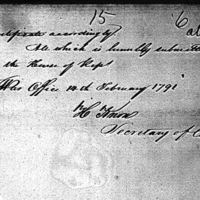 15
6
tificate accordingly
All which is humbly submitted
the House of Reps
War Office 14th February 1791
H Knox
Secretary of